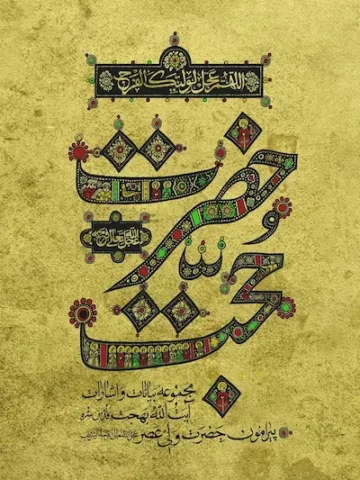 اللهم عجل لولیک الفرج
حضرت
حجت
عجل الله تعالی فرجه
مجموعه بیانات و اشارات
آیت الله بهجت قدس سره
پیرامون حضرت ولی عصر